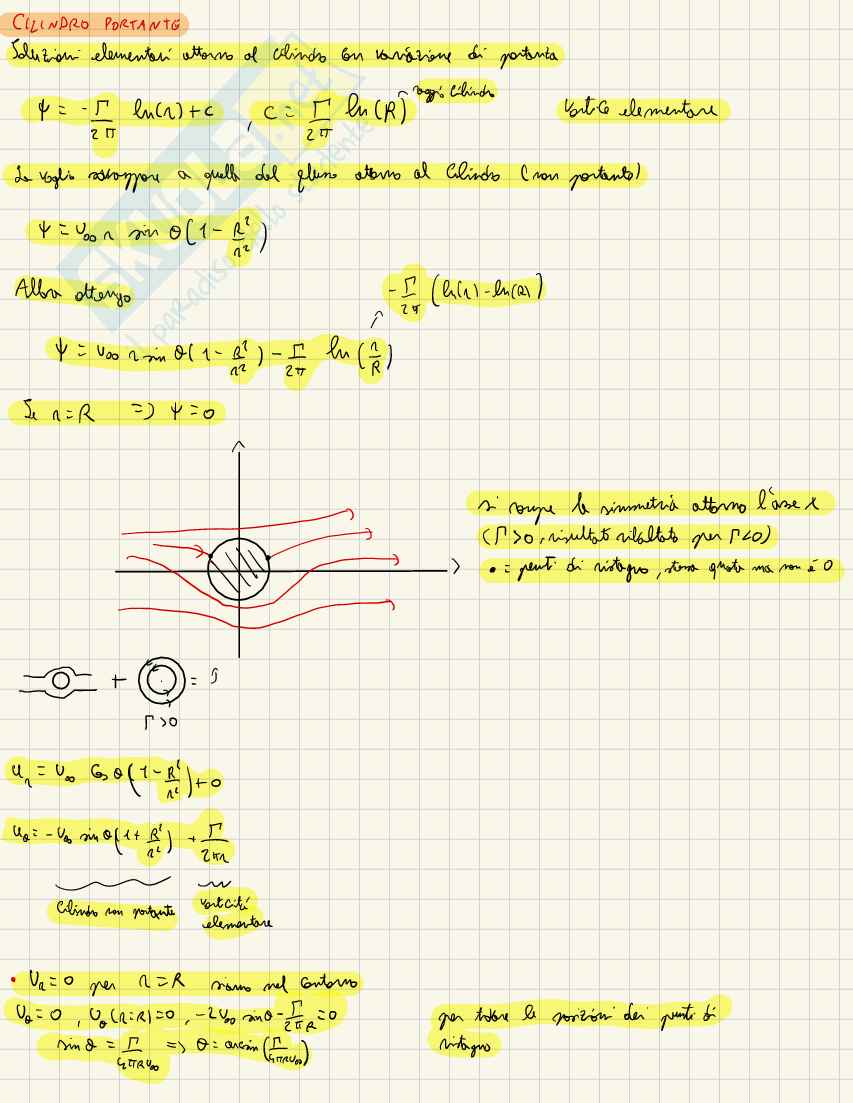 CILINDRO PORTANTE
Soluzioni elementari attorno al cilindro con variazione di portanza
ψ = -Γ/2π ln(r) + c , c = Γ/2π ln(R) raggio cilindro
Vortice elementare
La voglio sovrapporre a quella del flusso attorno al cilindro (non portante)
ψ = U∞ r sin θ (1 - R²/r²)
Allora ottengo
-Γ/2π (ln(r) - ln(R))
ψ = U∞ r sin θ (1 - R²/r²) - Γ/2π ln(r/R)
Se r = R => ψ = 0
si rompe la simmetria attorno l'asse x
(Γ>0, risultato ribaltato per Γ<0)
• = punti di ristagno, stessa quota ma non è 0
+ =
Γ>0
u_r = U∞ cos θ (1 - R²/r²) + 0
u_θ = -U∞ sin θ (1 + R²/r²) + Γ/2πr
Cilindro non portante
vorticità
elementare
• U_R = 0 per r = R siamo nel contorno
U_θ = 0 , U_θ (r=R) = 0 , -2U∞ sin θ - Γ/2πR = 0
per trovare le posizioni dei punti di
ristagno
sin θ = Γ/4πRU∞ => θ = arcsin(Γ/4πRU∞)
skuola.net
il paradiso dello studente